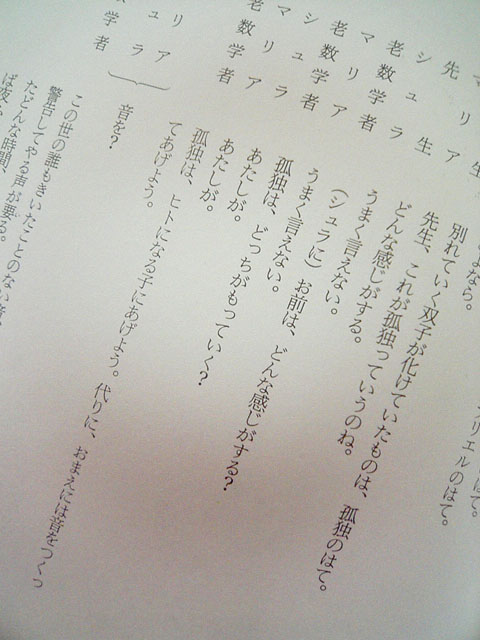 よなら。
リエルのはて。
生　別れていく双子が化けていたものは、孤独のはて。
マリア　先生、これが孤独っていうのね。
先生　どんな感じがする。
シュラ　うまく言えない。
老数学者　（シュラに）お前は、どんな感じがする？
マリア　うまく言えない。
老数学者　孤独は、どっちがもっていく？
シュラ　あたしが。
マリア　あたしが。
老数学者　孤独は、ヒトになる子にあげよう。代りに、おまえには音をつくっ
てあげよう。
リア
ュラ　音を？
数学者　この世の誰もきいたことのない音、
警告してやる声が要る。
たどんな時間、
ば夜